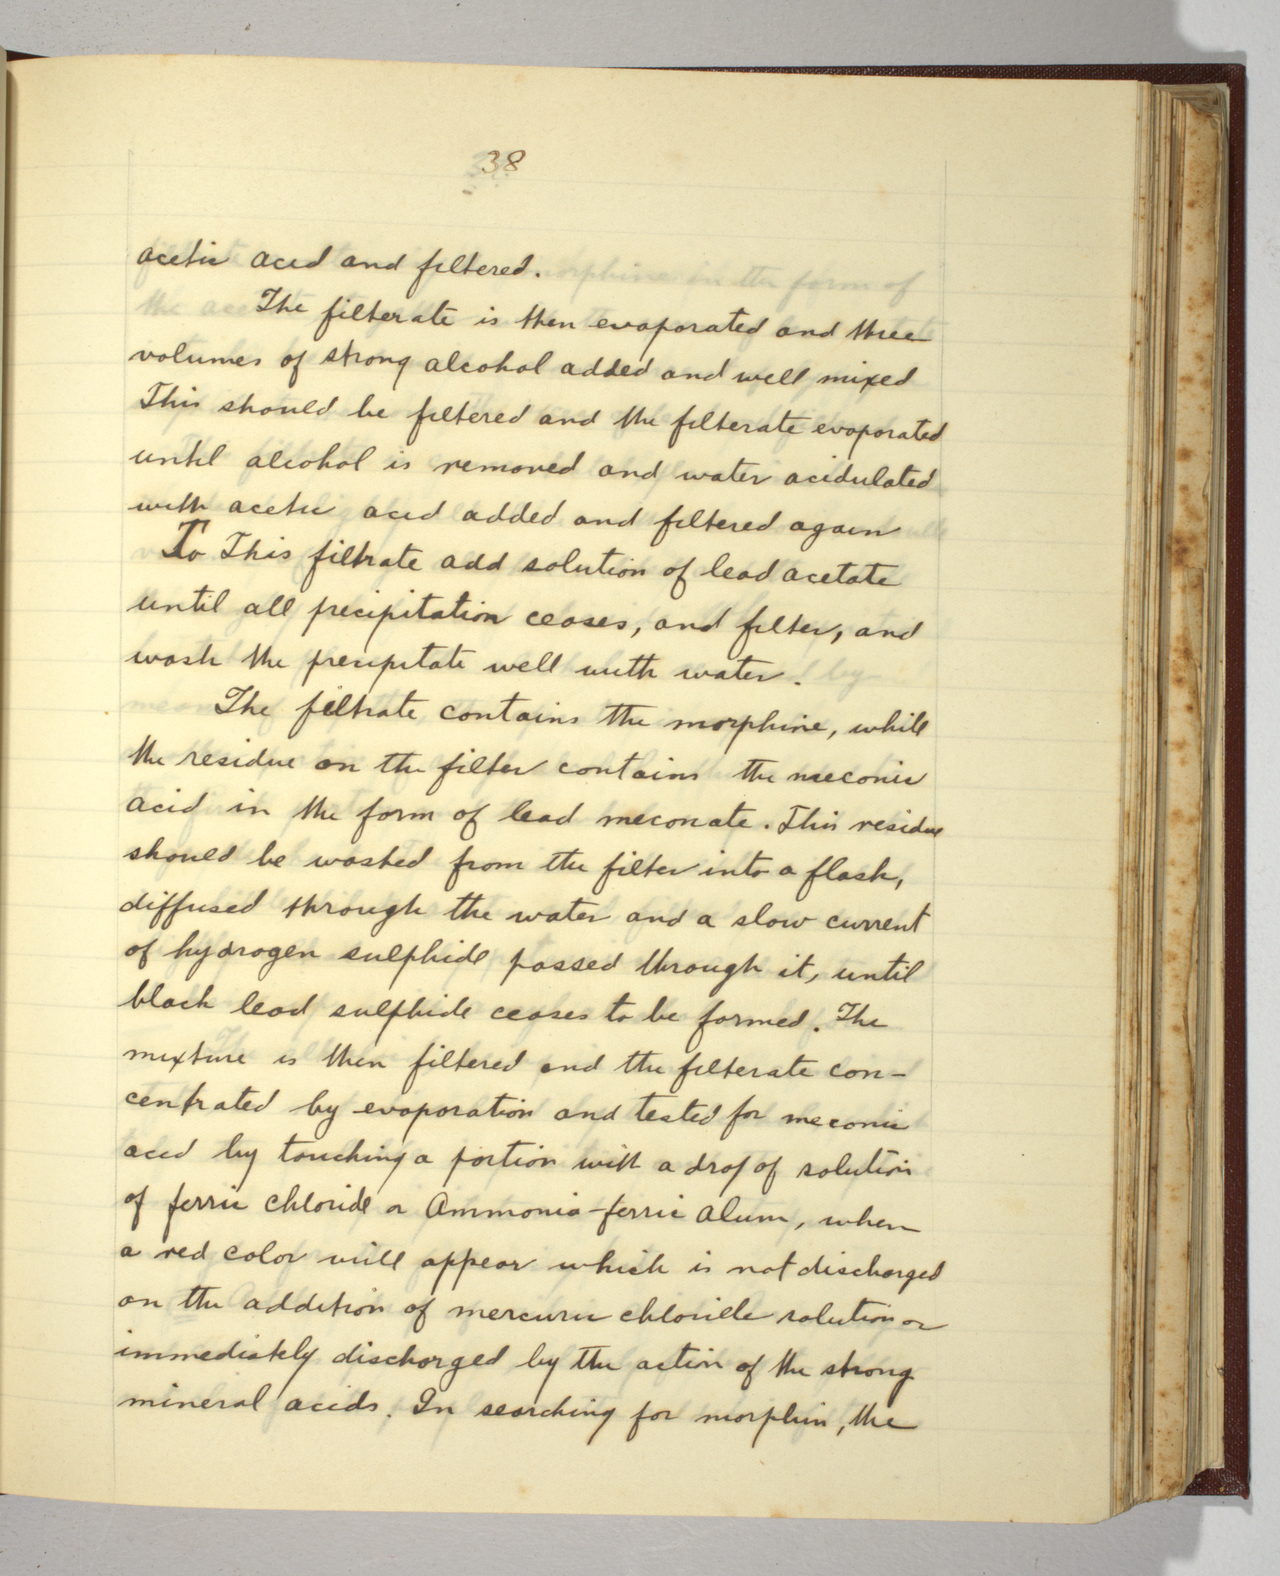 38
acetic acid and filtered.
The filterate is then evaporated and three
volumes of strong alcohol added and well mixed
This should be filtered and the filterate evaporated
until alcohol is removed and water acidulated
with acetic acid added and filtered again
To This filtrate add solution of lead acetate
until all precipitation ceases, and filter, and
wash the precipitate well with water.
The filtrate contains the morphine, while
the residue on the filter contains the meconic
acid in the form of lead meconate. This residue
should be washed from the filter into a flask,
diffused through the water and a slow current
of hydrogen sulphide passed through it, until
black lead sulphide ceases to be formed. The
mixture is then filtered and the filterate con-
centrated by evaporation and tested for meconic
acid by touching a portion with a drop of solution
of ferric chloride or Ammonia-ferric alum, when
a red color will appear which is not discharged
on the addition of mercuric chloride solution or
immediately discharged by the action of the strong
mineral acids. In searching for morphin, the